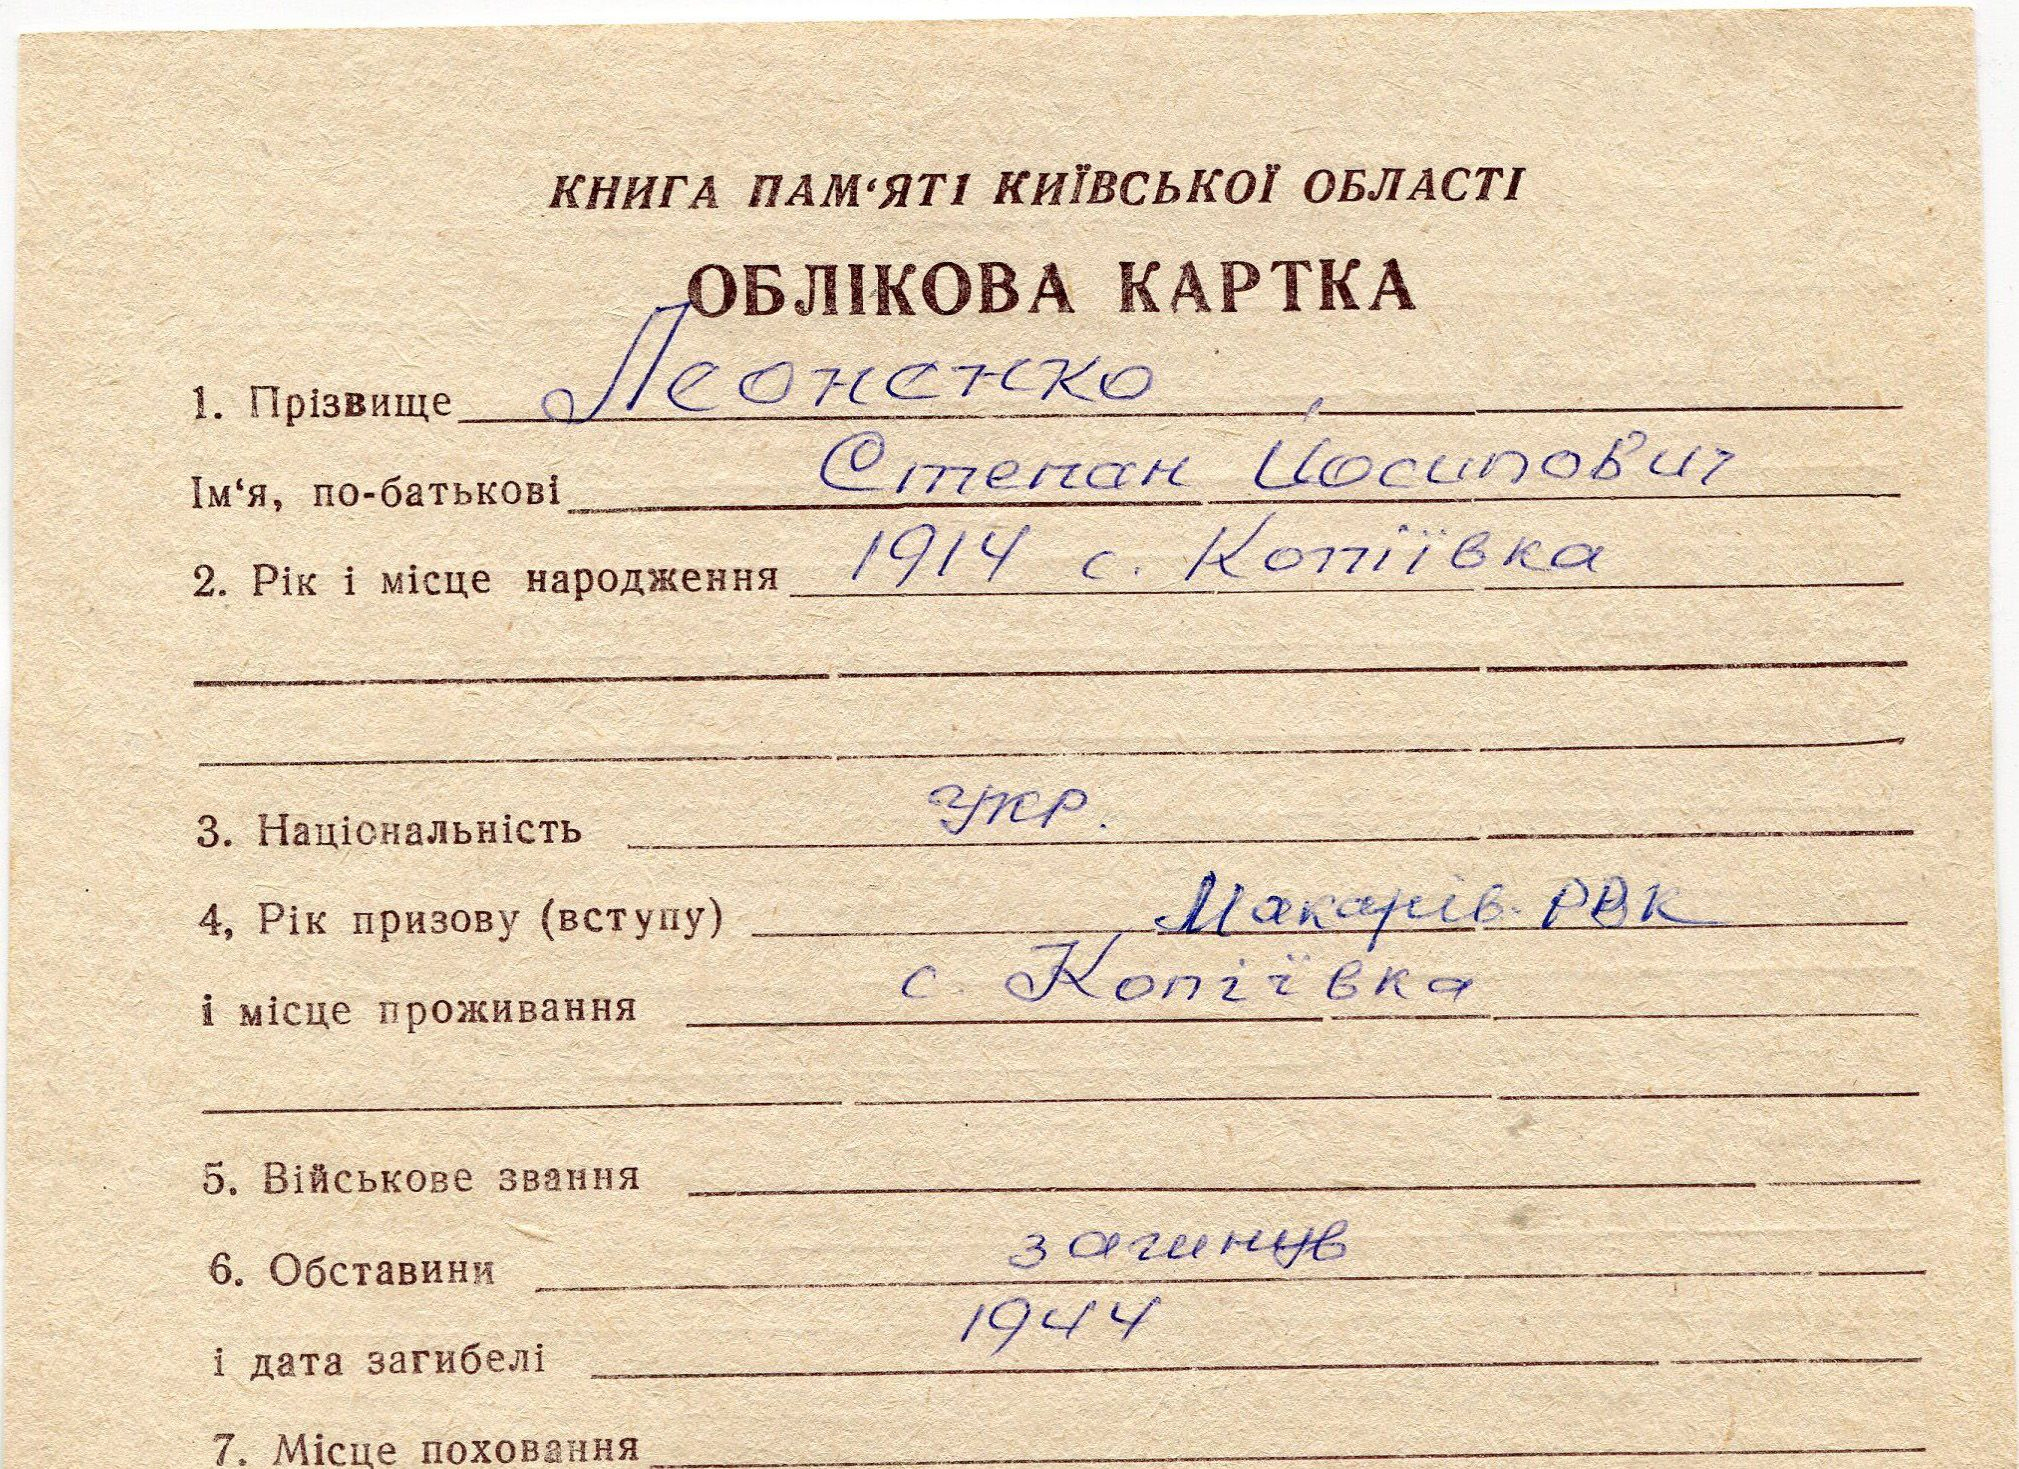 КНИГА ПАМ‘ЯТІ КИЇВСЬКОЇ ОБЛАСТІ
ОБЛІКОВА КАРТКА
1. Прізвище Леоненко
Ім‘я, по-батькові Степан Йосипович
2. Рік і місце народження 1914 с. Копіївка
3. Національність укр.
4, Рік призову (вступу) Макарів. РВК
і місце проживання с. Копіївка
5. Військове звання
6. Обставини загинув
і дата загибелі 1944
7. Місце поховання